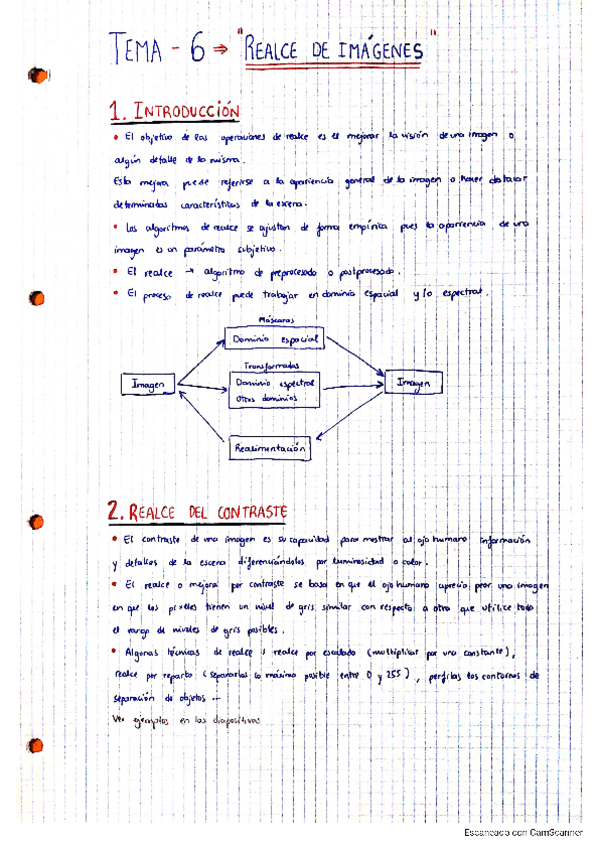 TEMA - 6 ⇒ "REALCE DE IMÁGENES"
1. INTRODUCCIÓN
• El objetivo de las operaciones de realce es el mejorar la visión de una imagen o
algún detalle de la misma.
Esta mejora puede referirse a la apariencia general de la imagen o hacer destacar
determinadas características de la escena.
• Los algoritmos de realce se ajustan de forma empírica pues la aparrencia de una
imagen es un parámetro subjetivo.
• El realce → algoritmo de preprocesado o postprocesado.
• El proceso de realce puede trabajar en dominio espacial y/o espectral.
Máscaras
Dominio espacial
Transformadas
Imagen
Dominio espectral
Otros dominios
Imagen
Realimentación
2. REALCE DEL CONTRASTE
• El contraste de una imagen es su capacidad para mostrar al ojo humano información
y detalles de la escena diferenciándolos por luminosidad o color.
• El realce o mejora por contraste se basa en que el ojo humano aprecia peor una imagen
en que los píxeles tienen un nivel de gris similar con respecto a otra que utilice todo
el rango de niveles de gris posibles.
• Algunas técnicas de realce: realce por escalado (multiplicar por una constante),
realce por reparto (separarlos lo máximo posible entre 0 y 255), perfilas los contornos de
separación de objetos ...
Ver ejemplos en las diapositivas
Escaneado con CamScanner